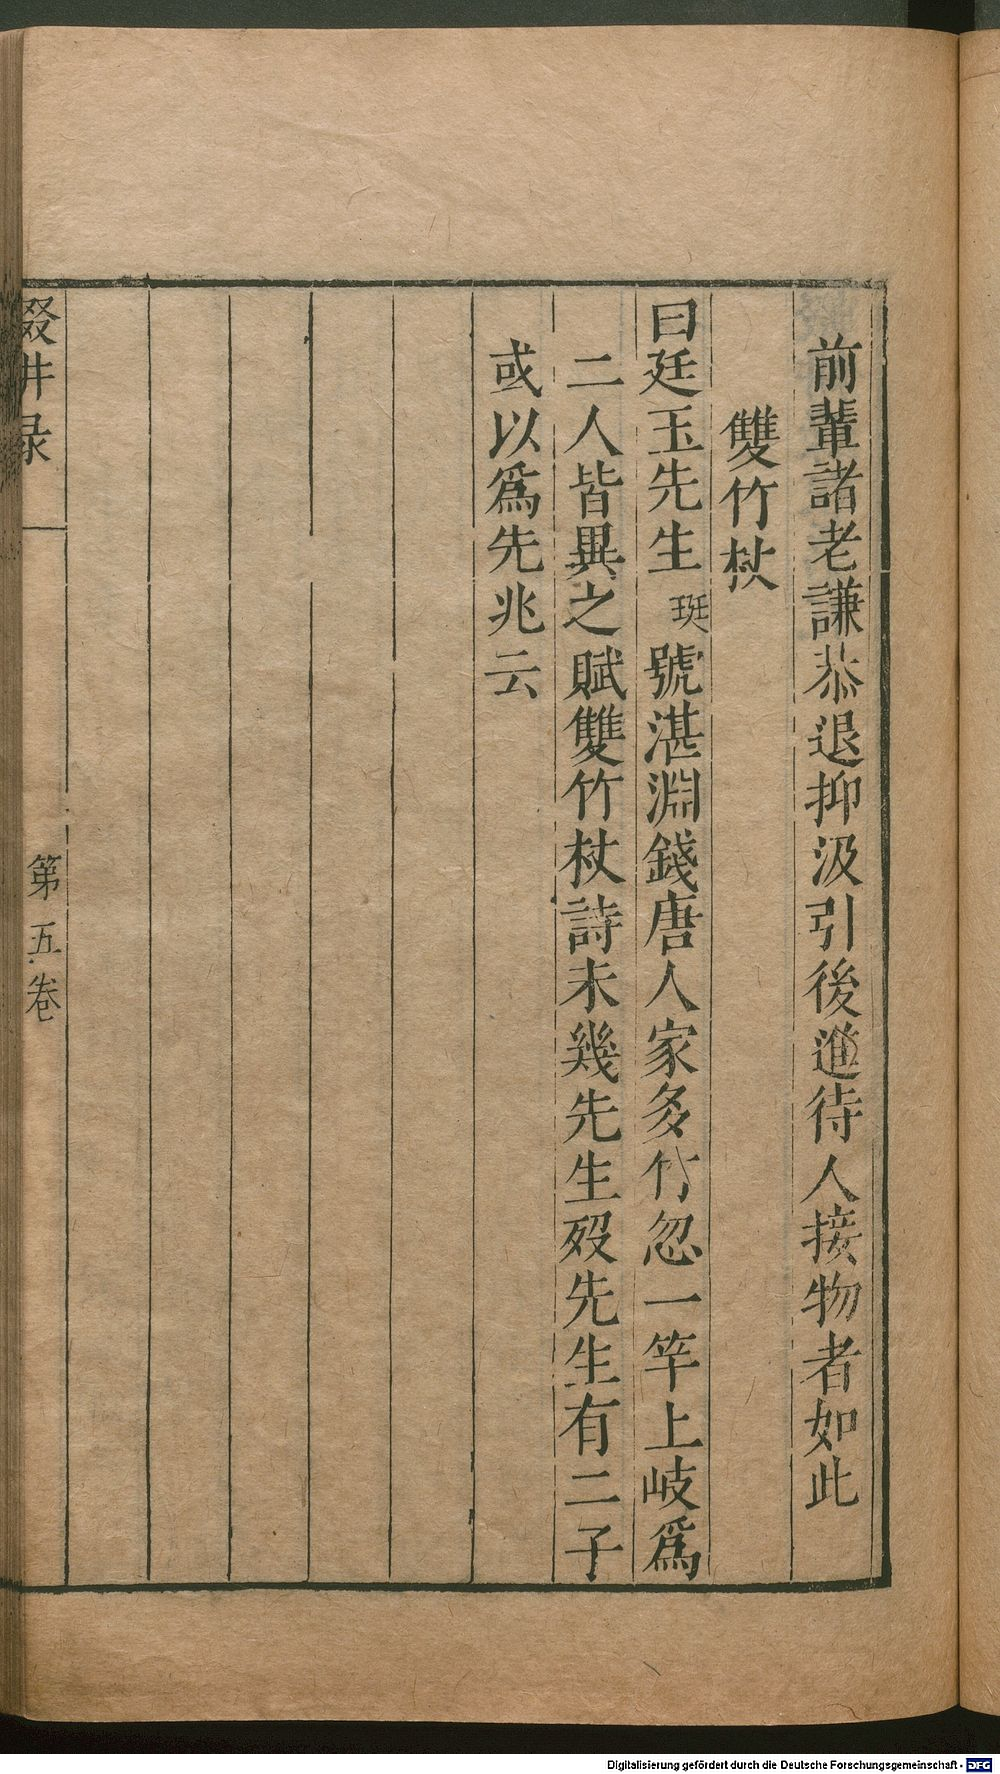 前輩諸老謙恭退抑汲引後進待人接物者如此
雙竹杖
曰廷玉先生珽號湛淵錢唐人家多竹忽一竿上岐爲
二人皆異之賦雙竹杖詩未幾先生歿先生有二子
或以爲先兆云
第五卷
Digitalisierung gefördert durch die Deutsche Forschungsgemeinschaft - DFG